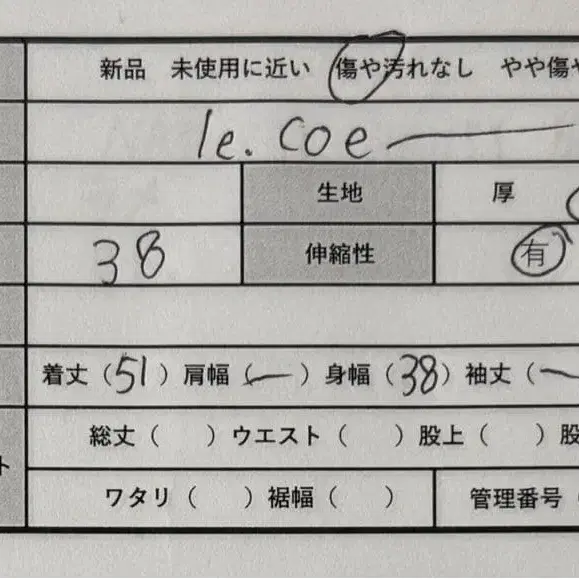 新品 未使用に近い 傷や汚れなし やや傷や
le.coe
生地 厚
38 伸縮性 有
着丈（51）肩幅（ー）身幅（38）袖丈（ー
総丈（ ）ウエスト（ ）股上（ ）股
ト
ワタリ（ ）裾幅（ ） 管理番号（